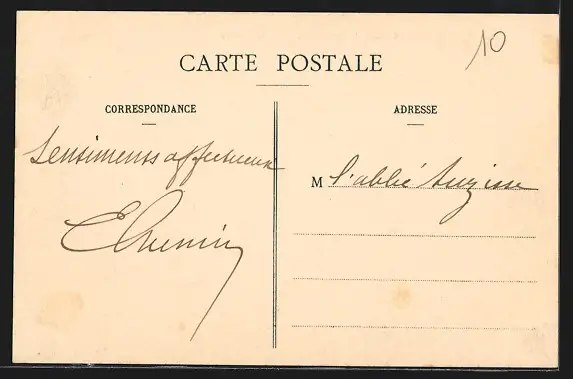 10
CARTE POSTALE
CORRESPONDANCE
Sentiments affectueux
E Chemin
ADRESSE
M l'abbé